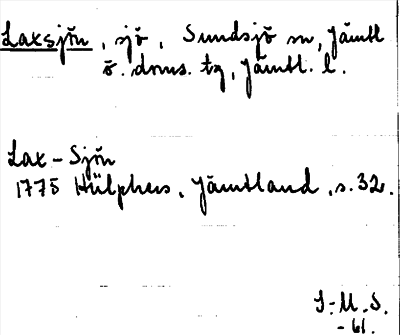 Laxsjön, sjö, Sundsjö sn, Jämtl
ö. doms. tg, Jämtl. l.
Lax-Sjön
1775 Hülphers, Jämtland, s. 32.
S. U. S.
-61.